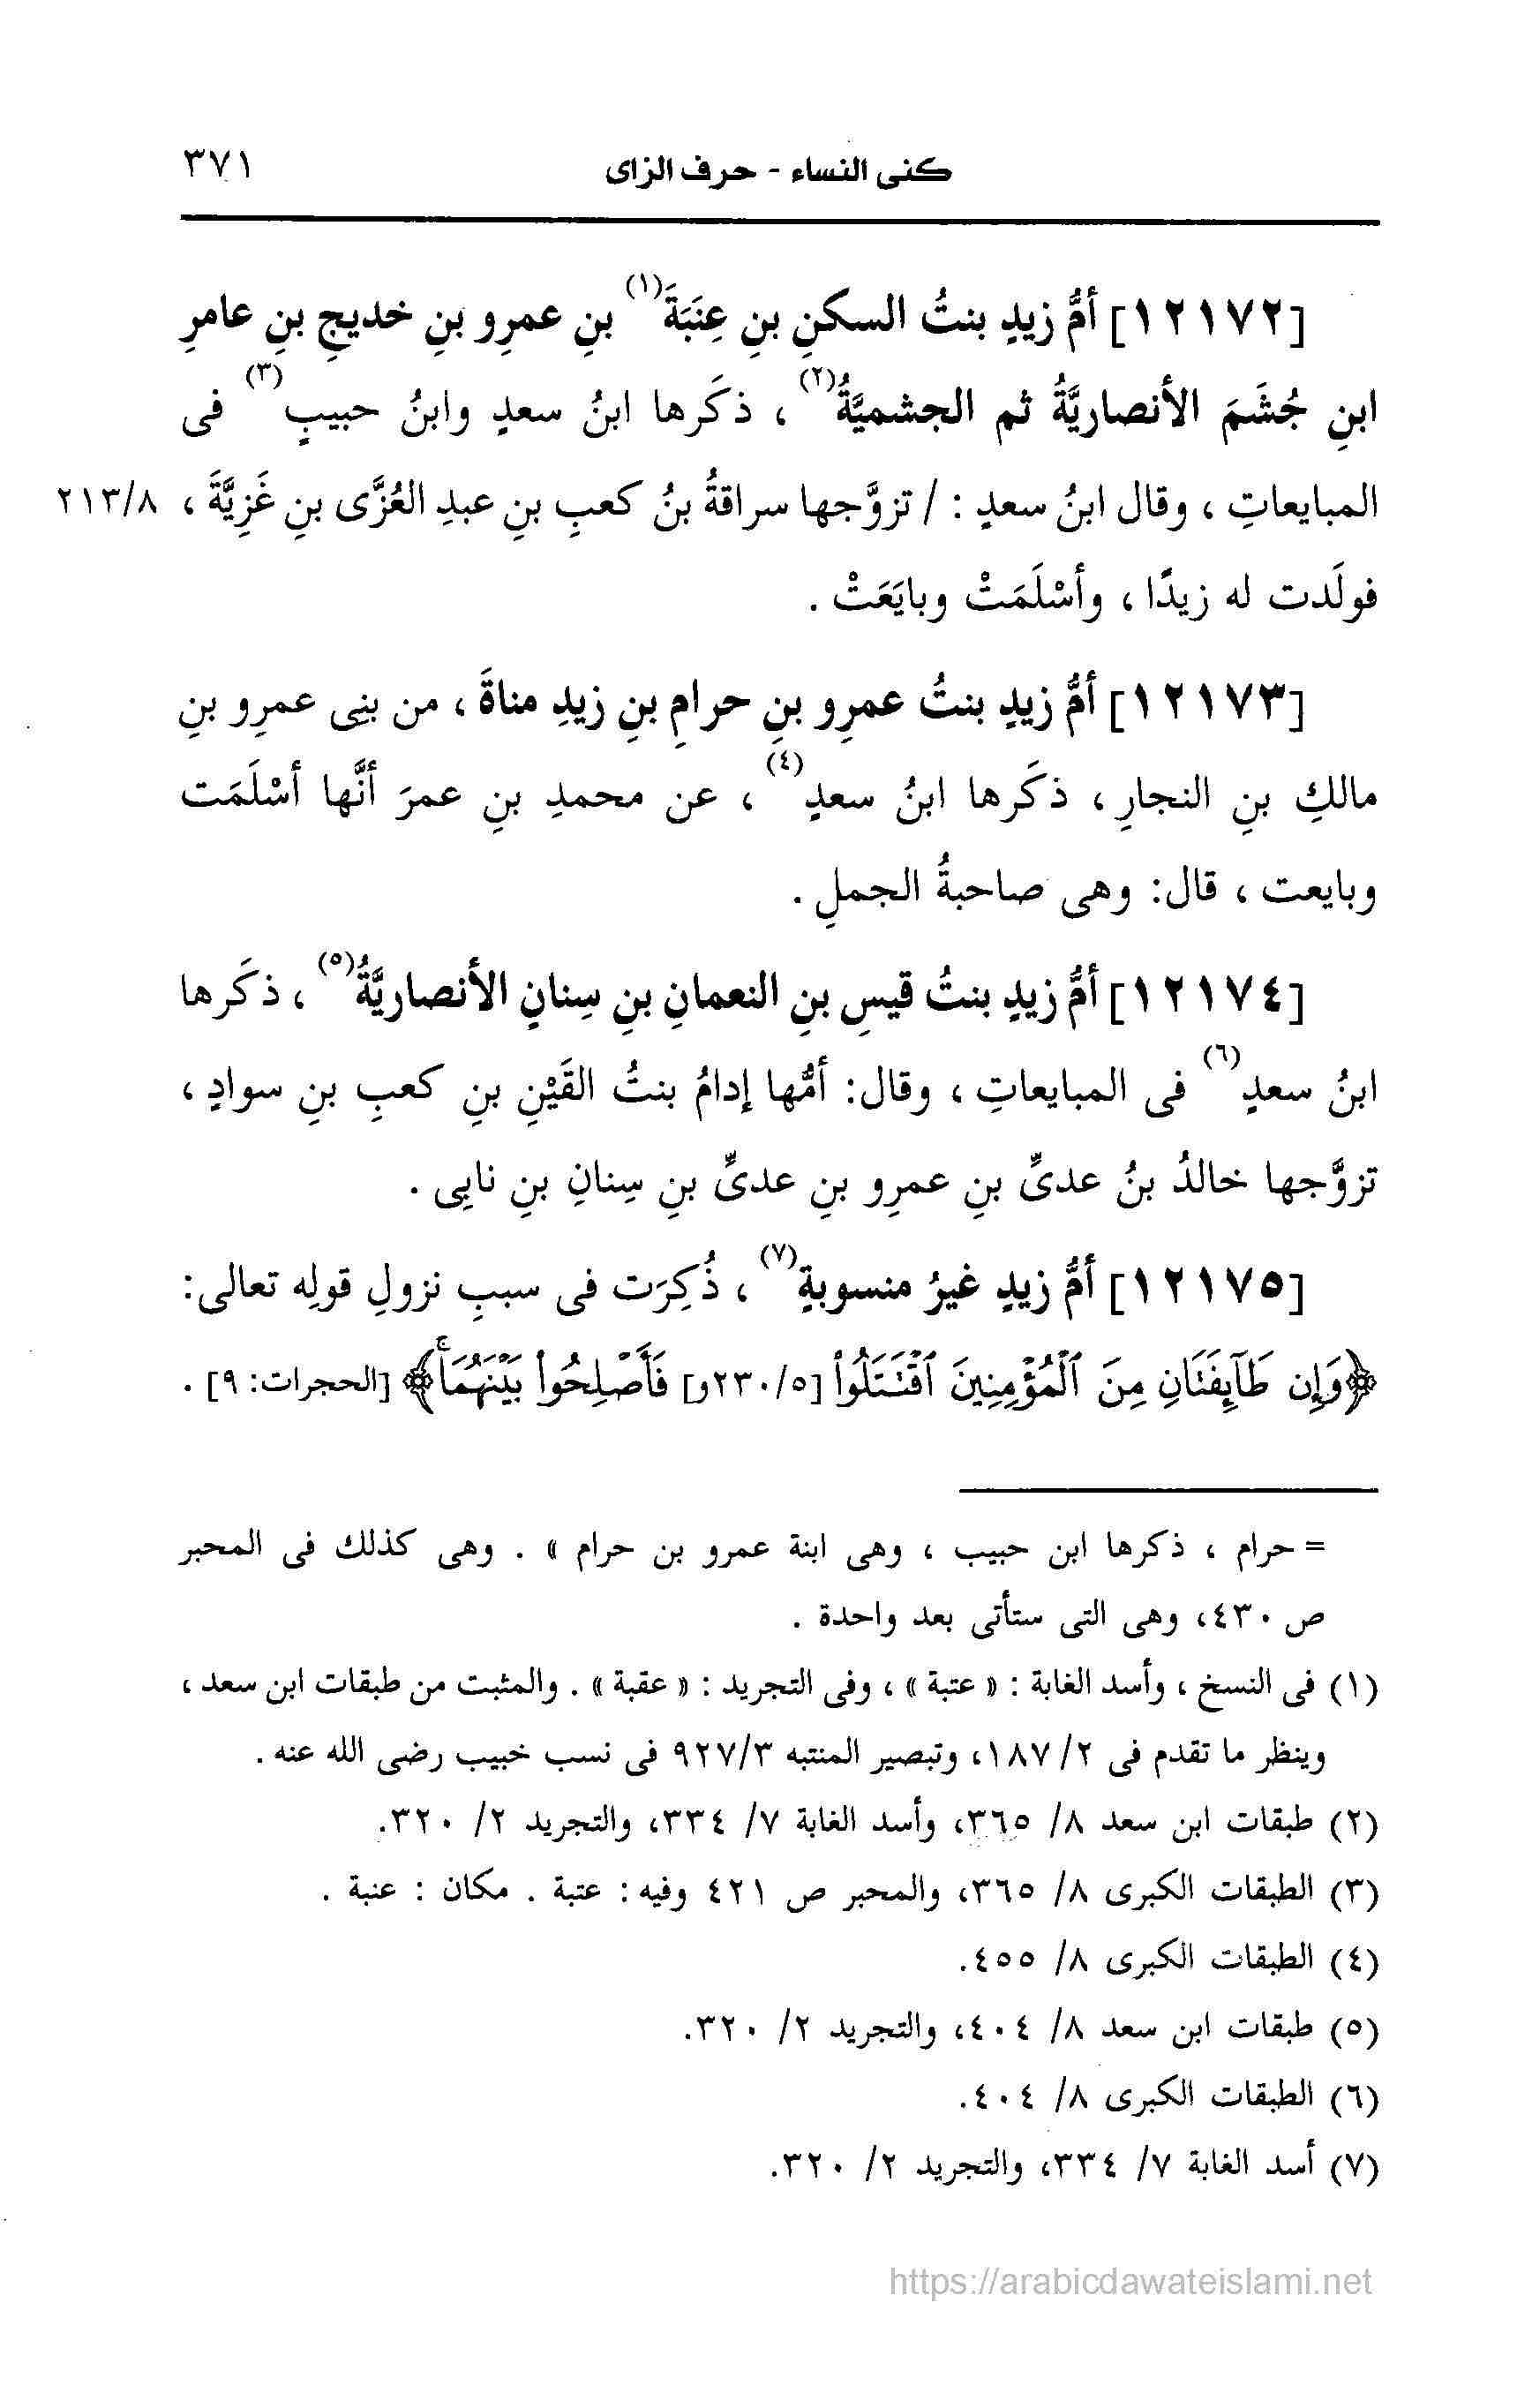 كنى النساء - حرف الزاى ٣٧١
[١٢١٧٢] أمُّ زيدٍ بنتُ السكنِ بنِ عِنَبَةَ(١) بنِ عمرِو بنِ خديجِ بنِ عامرِ
ابنِ جُشَمَ الأنصاريَّةُ ثم الجشميَّةُ(٢)، ذكَرها ابنُ سعدٍ وابنُ حبيبٍ(٣) فى
المبايعاتِ، وقال ابنُ سعدٍ: / تزوَّجها سراقةُ بنُ كعبِ بنِ عبدِ العُزَّى بنِ غَزِيَّةَ، ٢١٣/٨
فولَدت له زيدًا، وأسْلَمَتْ وبايَعَتْ.
[١٢١٧٣] أمُّ زيدٍ بنتُ عمرِو بنِ حرامِ بنِ زيدِ مناةَ، من بنِى عمرِو بنِ
مالكِ بنِ النجارِ، ذكَرها ابنُ سعدٍ(٤)، عن محمدِ بنِ عمرَ أنَّها أسْلَمَت
وبايعت، قال: وهى صاحبةُ الجملِ.
[١٢١٧٤] أمُّ زيدٍ بنتُ قيسِ بنِ النعمانِ بنِ سِنانٍ الأنصاريَّةُ(٥)، ذكَرها
ابنُ سعدٍ(٦) فى المبايعاتِ، وقال: أمُّها إدامُ بنتُ القَيْنِ بنِ كعبِ بنِ سوادٍ،
تزوَّجها خالدُ بنُ عدىِّ بنِ عمرِو بنِ عدىِّ بنِ سِنانِ بنِ نابِى.
[١٢١٧٥] أمُّ زيدٍ غيرُ منسوبةٍ(٧)، ذُكِرَت فى سببِ نزولِ قولِه تعالى:
﴿وَإِن طَآئِفَتَانِ مِنَ ٱلْمُؤْمِنِينَ ٱقْتَتَلُوا۟ [٢٣٠/٥و] فَأَصْلِحُوا۟ بَيْنَهُمَا ۚ﴾ [الحجرات: ٩].
= حرام، ذكرها ابن حبيب، وهى ابنة عمرو بن حرام». وهى كذلك فى المحبر
ص ٤٣٠، وهى التى ستأتى بعد واحدة.
(١) فى النسخ، وأسد الغابة: «عتبة»، وفى التجريد: «عقبة». والمثبت من طبقات ابن سعد،
وينظر ما تقدم فى ٢/ ١٨٧، وتبصير المنتبه ٩٢٧/٣ فى نسب خبيب رضى الله عنه.
(٢) طبقات ابن سعد ٨/ ٣٦٥، وأسد الغابة ٧/ ٣٣٤، والتجريد ٢/ ٣٢٠.
(٣) الطبقات الكبرى ٨/ ٣٦٥، والمحبر ص ٤٢١ وفيه: عتبة. مكان: عنبة.
(٤) الطبقات الكبرى ٨/ ٤٥٥.
(٥) طبقات ابن سعد ٨/ ٤٠٤، والتجريد ٢/ ٣٢٠.
(٦) الطبقات الكبرى ٨/ ٤٠٤.
(٧) أسد الغابة ٧/ ٣٣٤، والتجريد ٢/ ٣٢٠.
https://arabicdawateislami.net